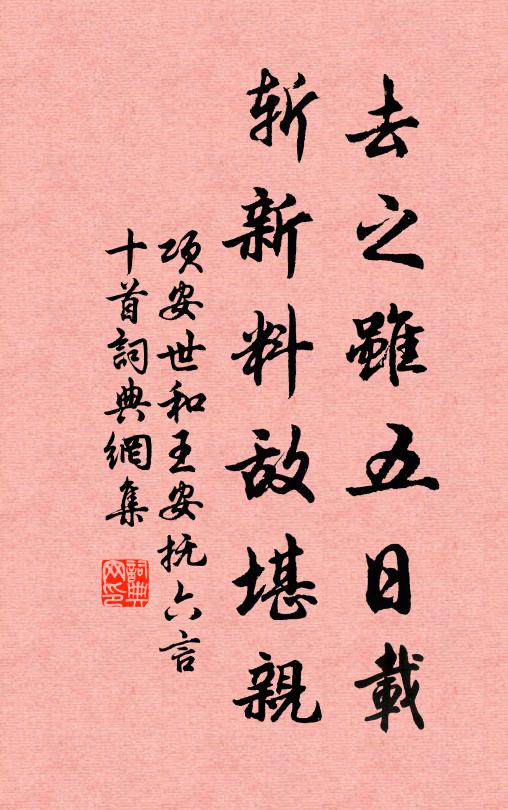 去之雖五日載
斬新料敌堪親
项安世和王安抚六言
十首詞典網集
詞典网印